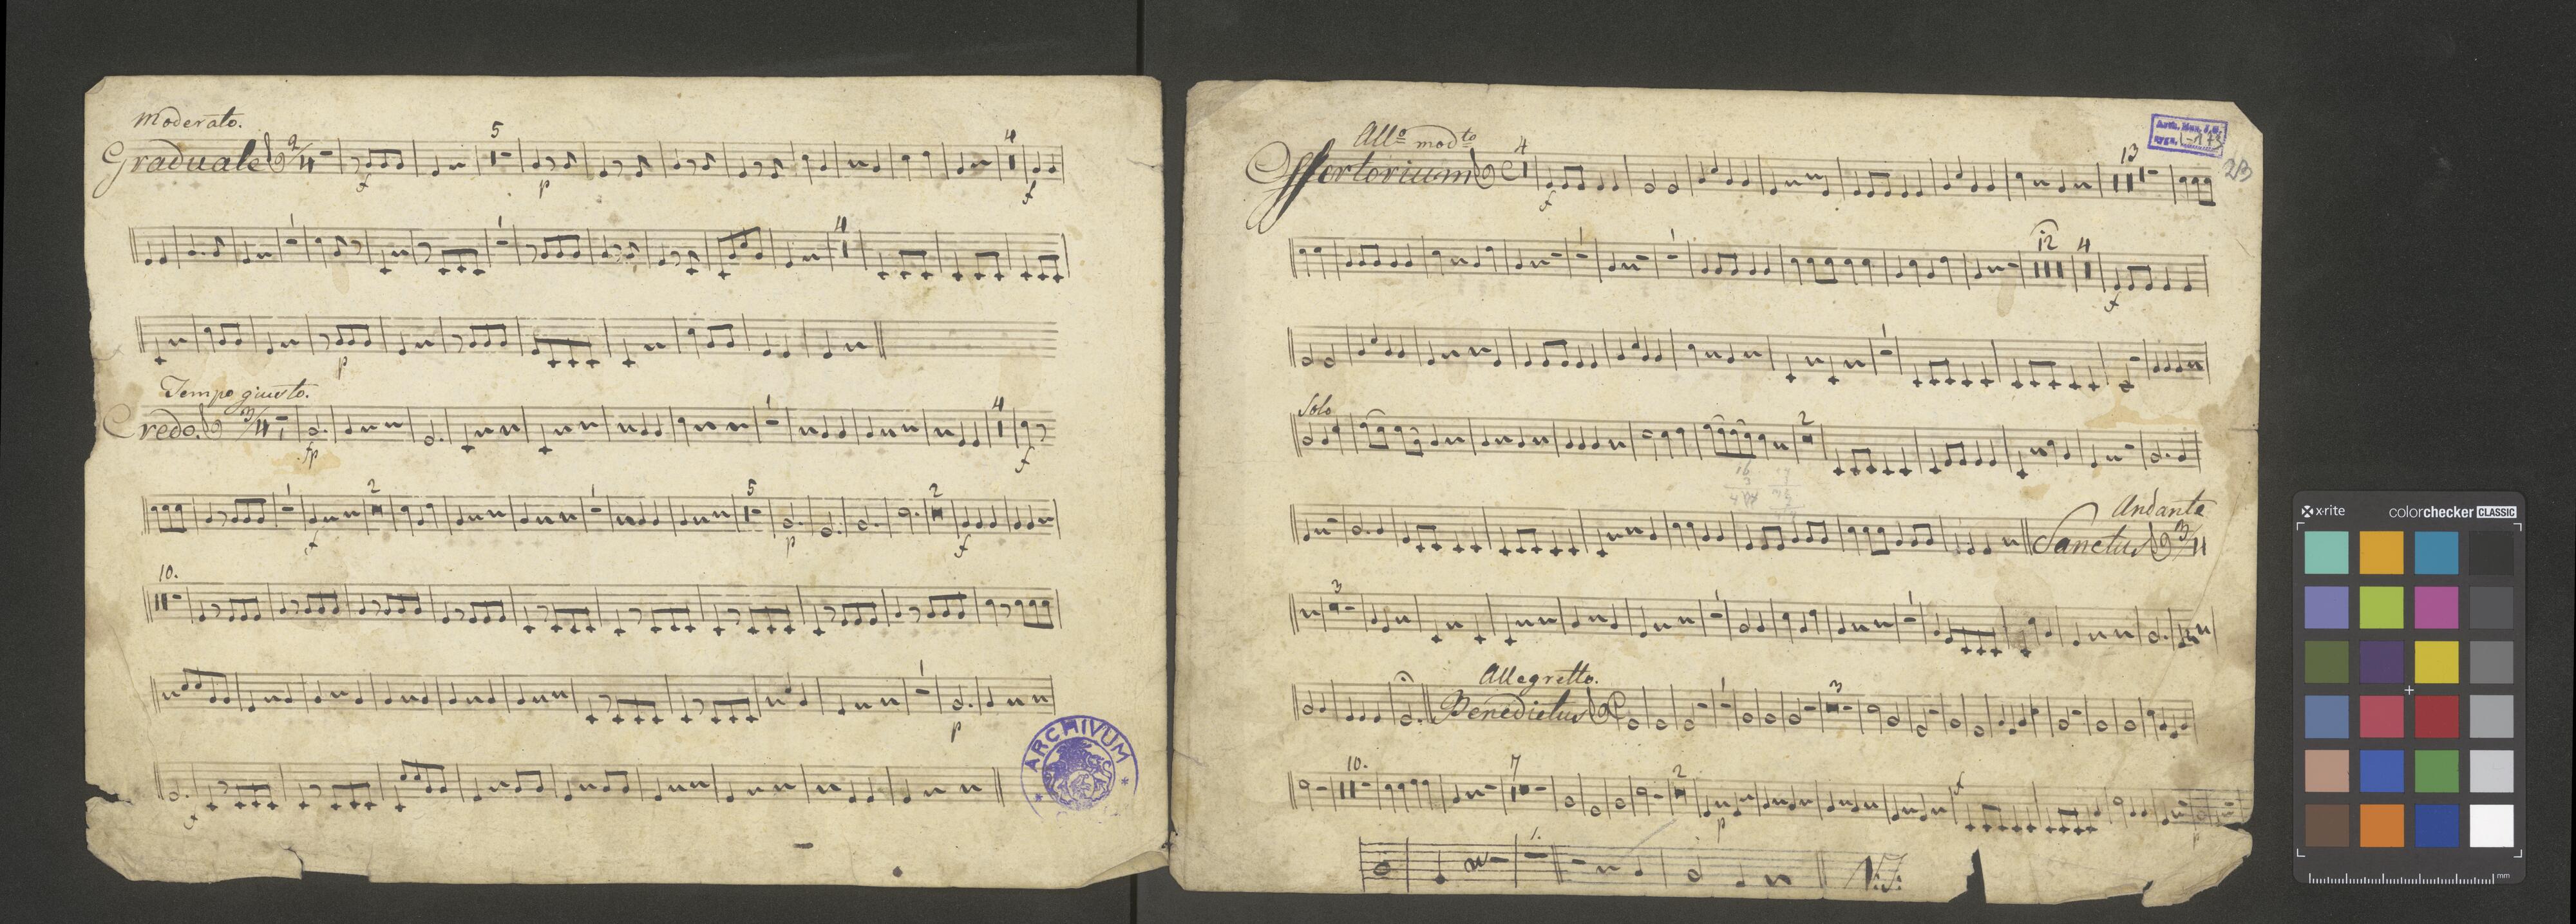 Moderato.
5 4
Graduale 2/4
f p f
1 1 4
p
Tempo giusto.
1 4
Credo. 3/4
fp f
1 2 1 5 2
f p f
10.
1
p
ARCHIVUM
f
All.º mod.to
4 13
23
Offertorium C
f
1 1 12 4
f
1
Solo
2
Andante
Sanctus 3/4
3 1 1
Allegretto.
1 3
Benedictus
10. 7 2 f
p p
1.
x-rite colorchecker CLASSIC
mm